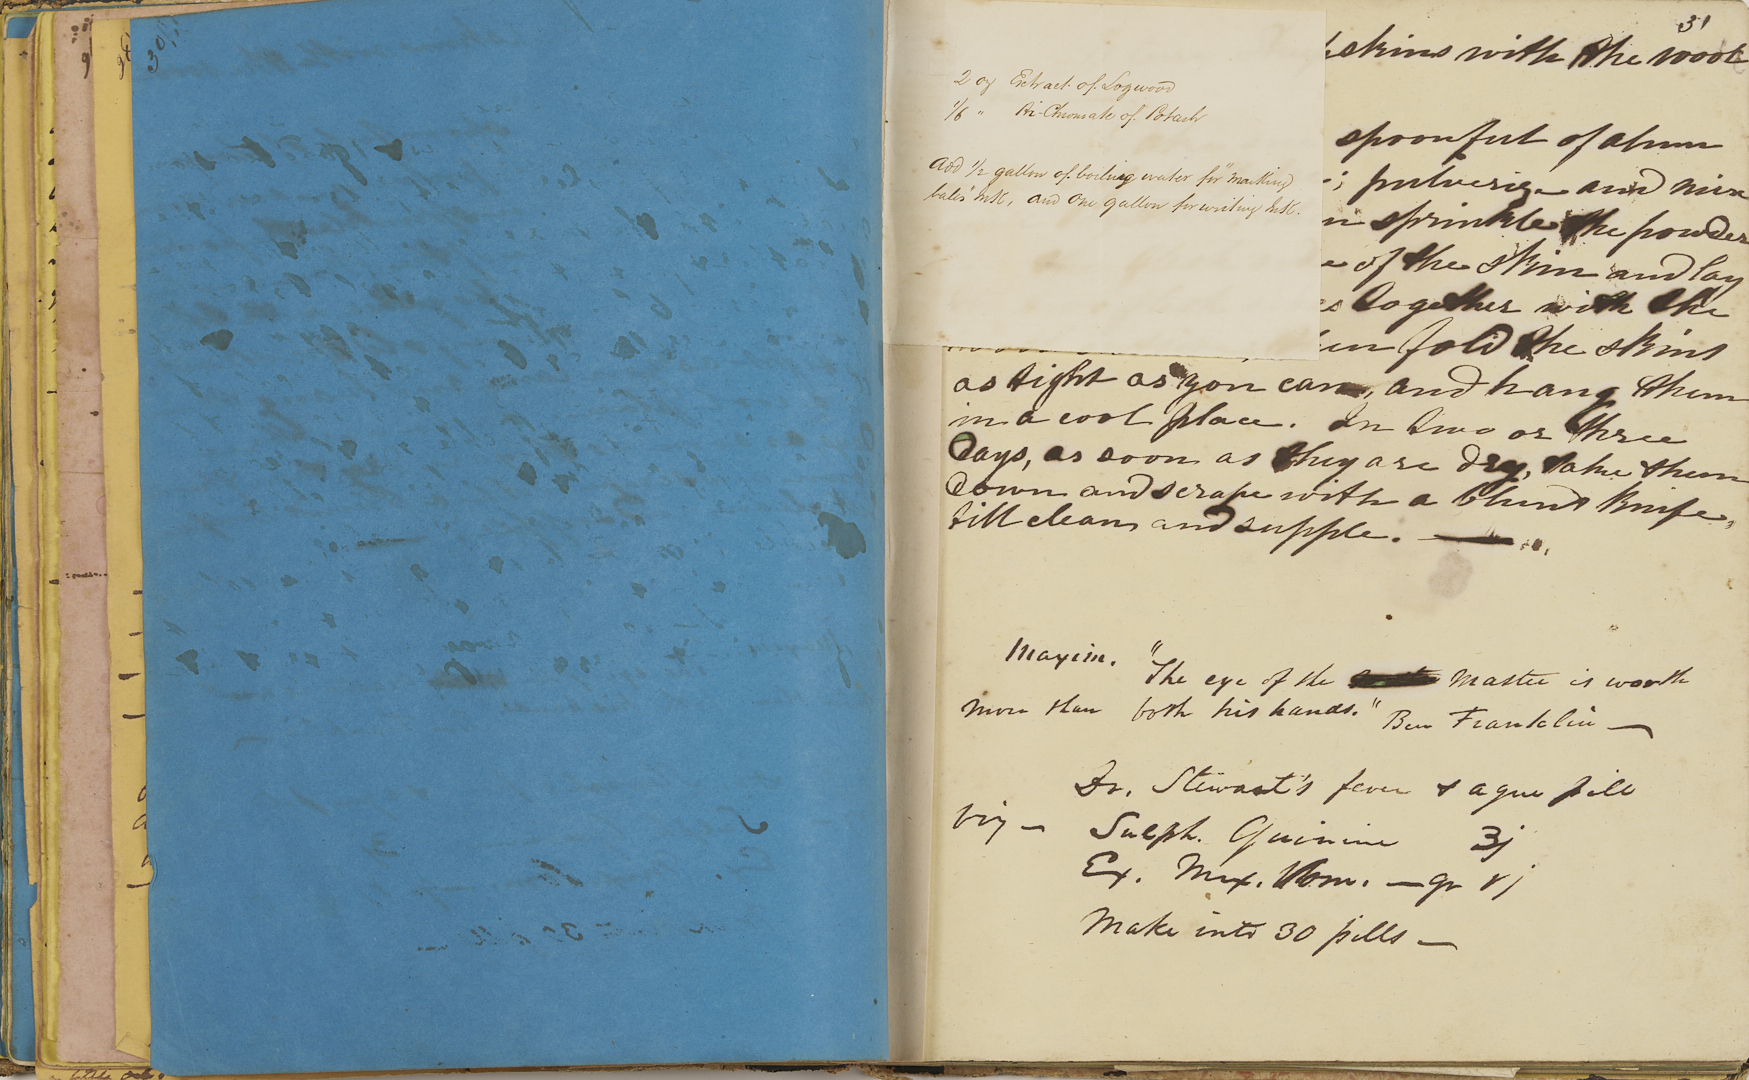 30
31
2 oz Extract of Logwood
1/6 " Bi-Chromate of Potash
Add 1/2 gallon of boiling water for "marking
bales" Ink, and one gallon for writing Ink.
skins with the wool
spoonful of alum
; pulverize and mix
sprinkle the powder
of the skin and lay
together with the
fold the skins
as tight as you can, and hang them
in a cool place. In two or three
days, as soon as they are dry, take them
down and scrape with a blunt knife,
till clean, and supple. —
Maxim. "The eye of the Master is worth
more than both his hands." Ben Franklin —
Dr. Stewart's fever & ague pill
viz — Sulph. Quinine ʒj
Ex. Nux. Vom. — gr vj
Make into 30 pills —